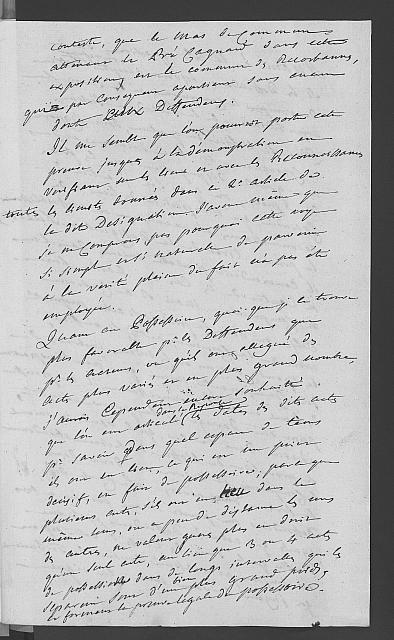 conteste, que le mas de Communs
attenant le Pré Cagnard dans cette
exposition, est le commun de Recorbanne,
qui par Consequent apartient sans aucun
doute Deffendeurs.
Il me semble que l'on pourroit porter cette
preuve jusques à la démonstration en
verifiant sur les lieux et avec les Reconnoissances
toutes les limites donnés dans ce 2e article de
la dite Designation. J'avoue même que
je ne Comprens pas pourquoi cette voye
si simple et si naturelle de parvenir
à la verité pleine du fait n'a pas été
employée.
Quant au Possessoire, quoi-que je le trouve
plus favorable pr les Deffendeurs que
pr les acteurs, vu qu'ils ont allegué des
actes plus variés et en plus grand nombre,
j'aurois Cependant encore souhaité
que l'on eut articulé dans les Reponses les dates des dits actes
pr savoir dans quel espace de tems
ils ont eu lieu, ce qui est un point
decisif, en fait de possessoire, parce que
plusieurs actes, s'ils ont eu lieu dans le
même tems, ou à peu de distance les uns
des autres, ne valent gueres plus en droit
qu'un seul acte, au lieu que 3 ou 4 actes
de possession dans de longs intervalles qui les
separent sont d'un bien plus grand poids,
et forment la preuve legale du possessoire.